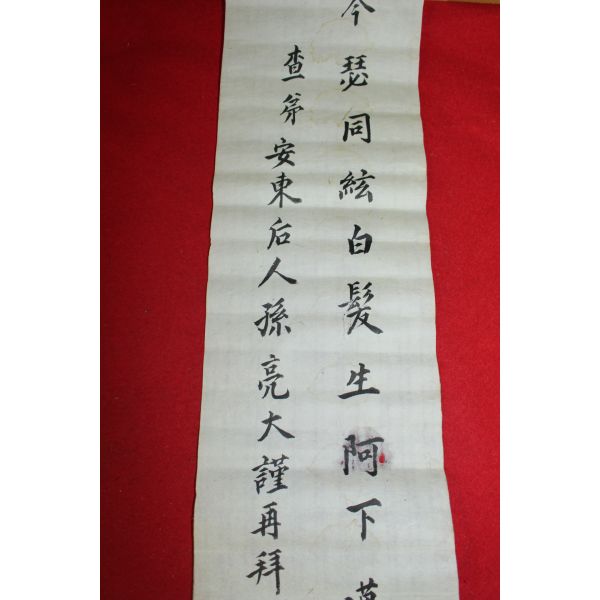 今瑟同絃白髮生阿下
查弟安東后人孫亮大謹再拜